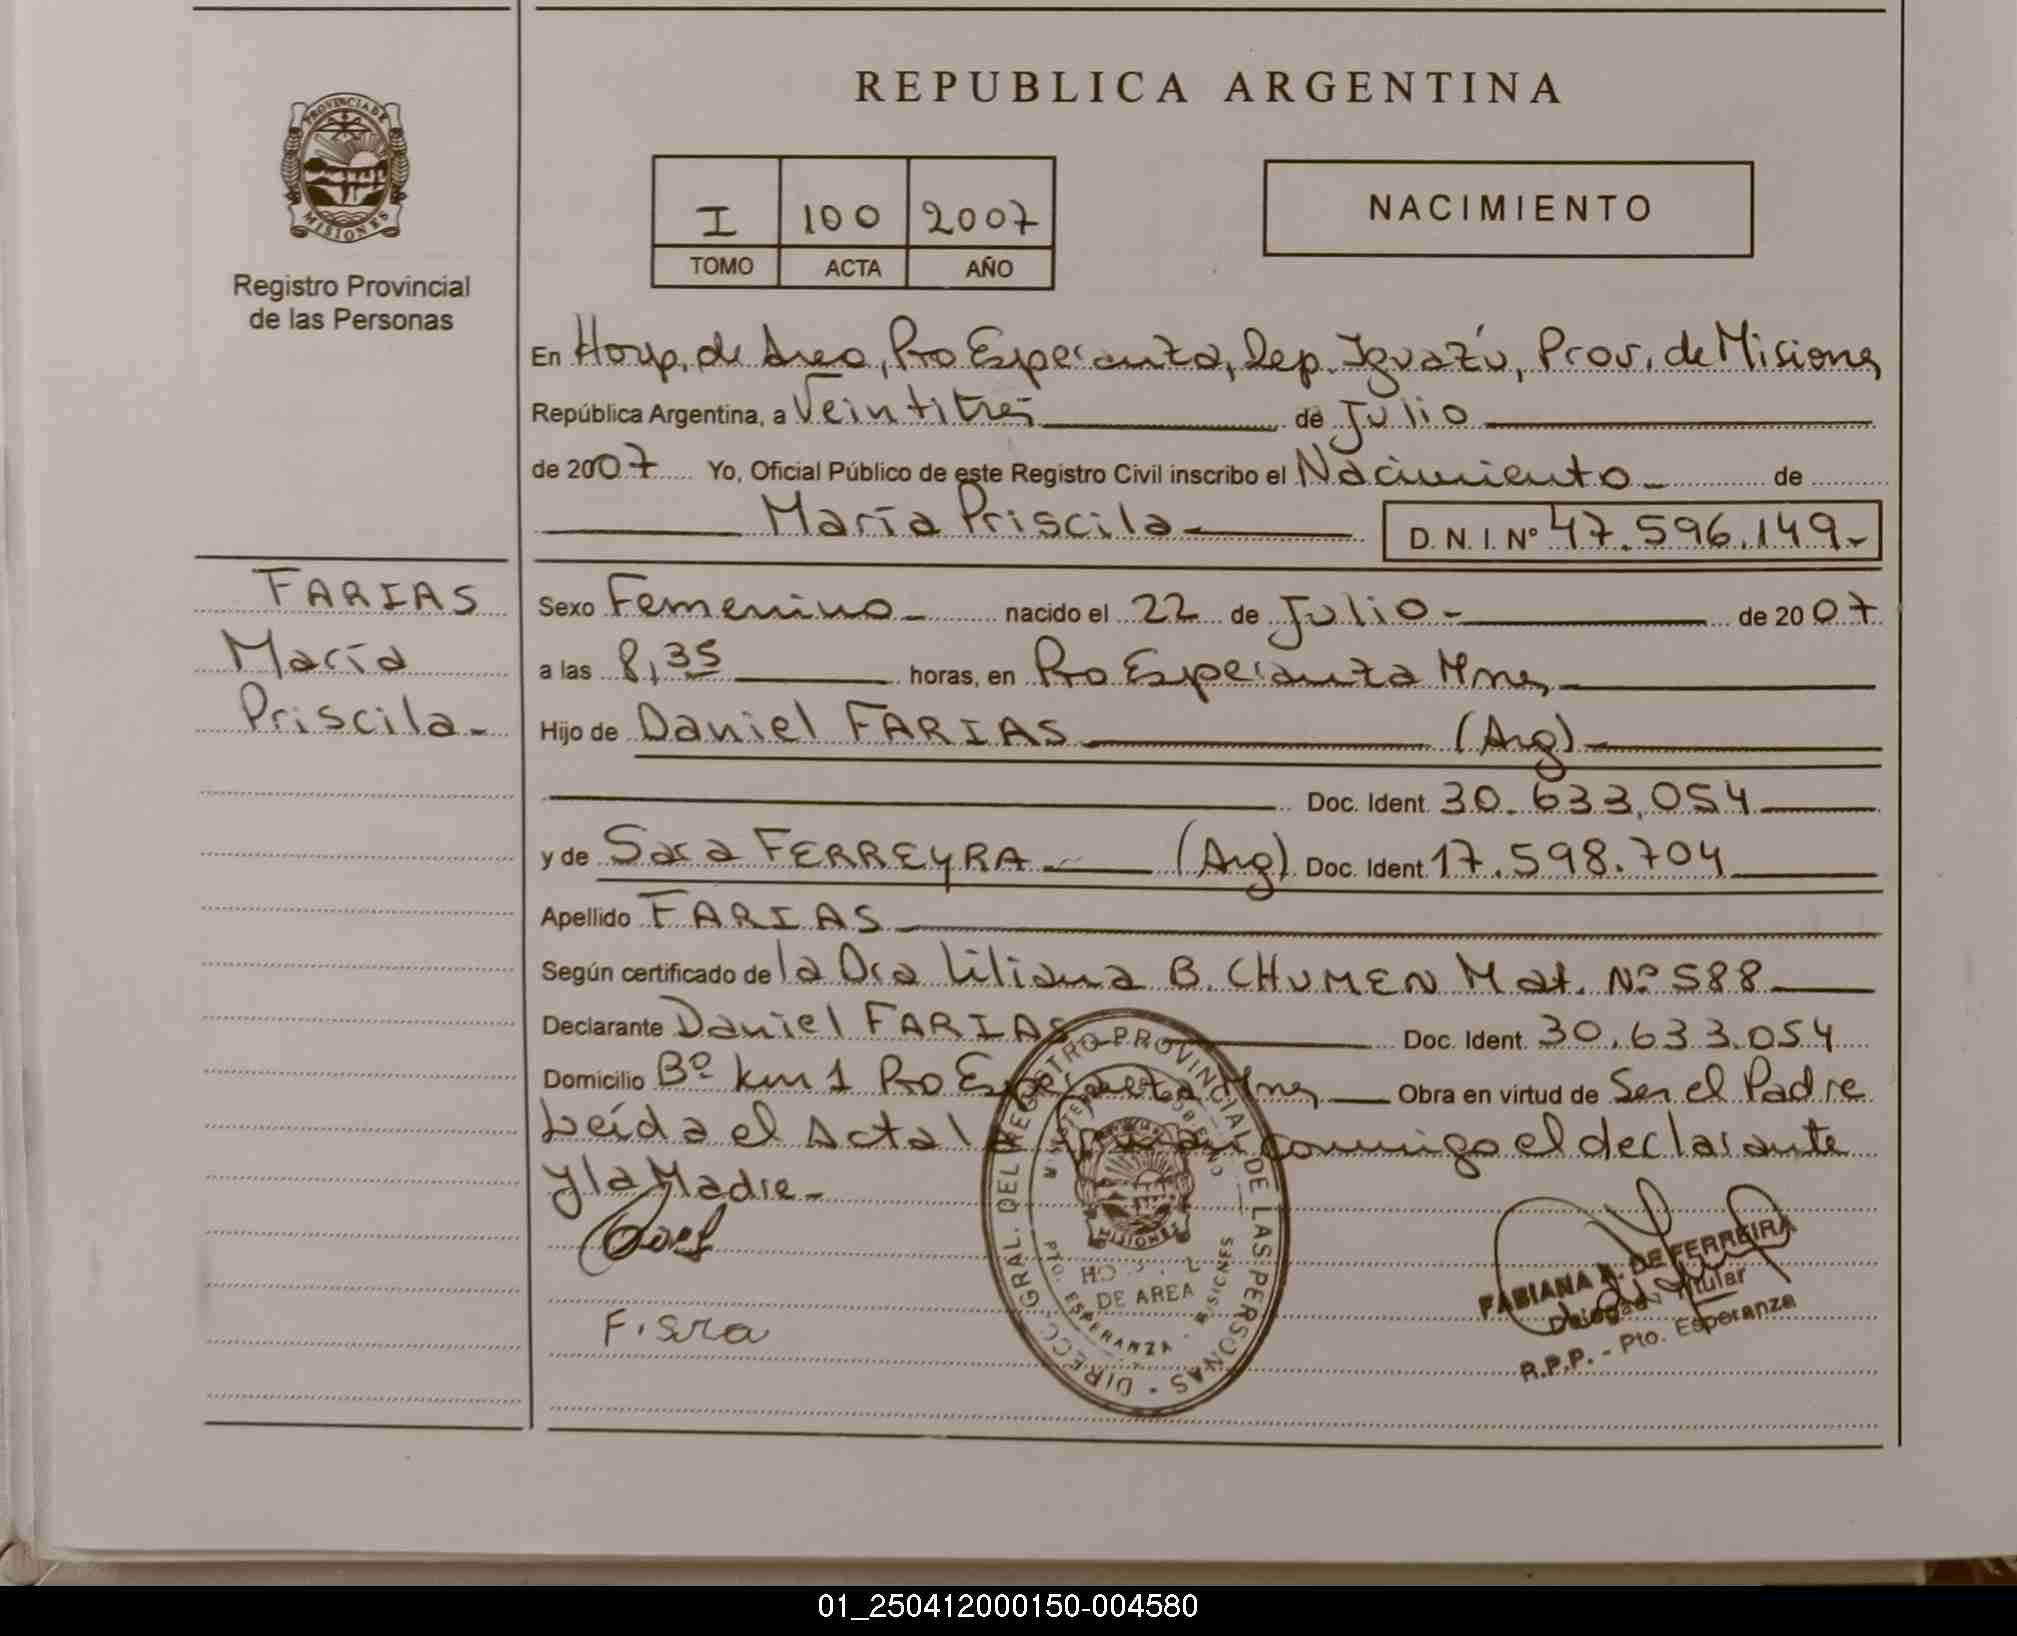 REPUBLICA ARGENTINA
PROVINCIA DE
MISIONES
Registro Provincial
de las Personas
I 100 2007
TOMO ACTA AÑO
NACIMIENTO
En Hosp. de Area, Pto Esperanza, Dep. Iguazú, Prov. de Misiones
República Argentina, a Veintitres de Julio
de 2007 Yo, Oficial Público de este Registro Civil inscribo el Nacimiento de
María Priscila D. N. I. Nº 47.596.149.-
FARIAS
María
Priscila-
Sexo Femenino nacido el 22 de Julio- de 2007
a las 8,35 horas, en Pto Esperanza Mnes
Hijo de Daniel FARIAS (Arg)
Doc. Ident. 30.633.054
y de Sara FERREYRA (Arg) Doc. Ident. 17.598.704
Apellido FARIAS
Según certificado de la Dra Liliana B. CHUMEN Mat. Nº 588
Declarante Daniel FARIAS Doc. Ident. 30.633.054
Domicilio Bº km 1 Pto Esperanza Mnes Obra en virtud de Ser el Padre
Leída el Acta la conmigo el declarante
y la Madre-
F. Sara
DIRECC. GRAL. DEL REGISTRO PROVINCIAL DE LAS PERSONAS
MINISTERIO DE GOBIERNO
MISIONES
DE AREA
PTO. ESPERANZA - MISIONES
FABIANA DE FERREIRA
Delegada Titular
R.P.P. - Pto. Esperanza
01_250412000150-004580